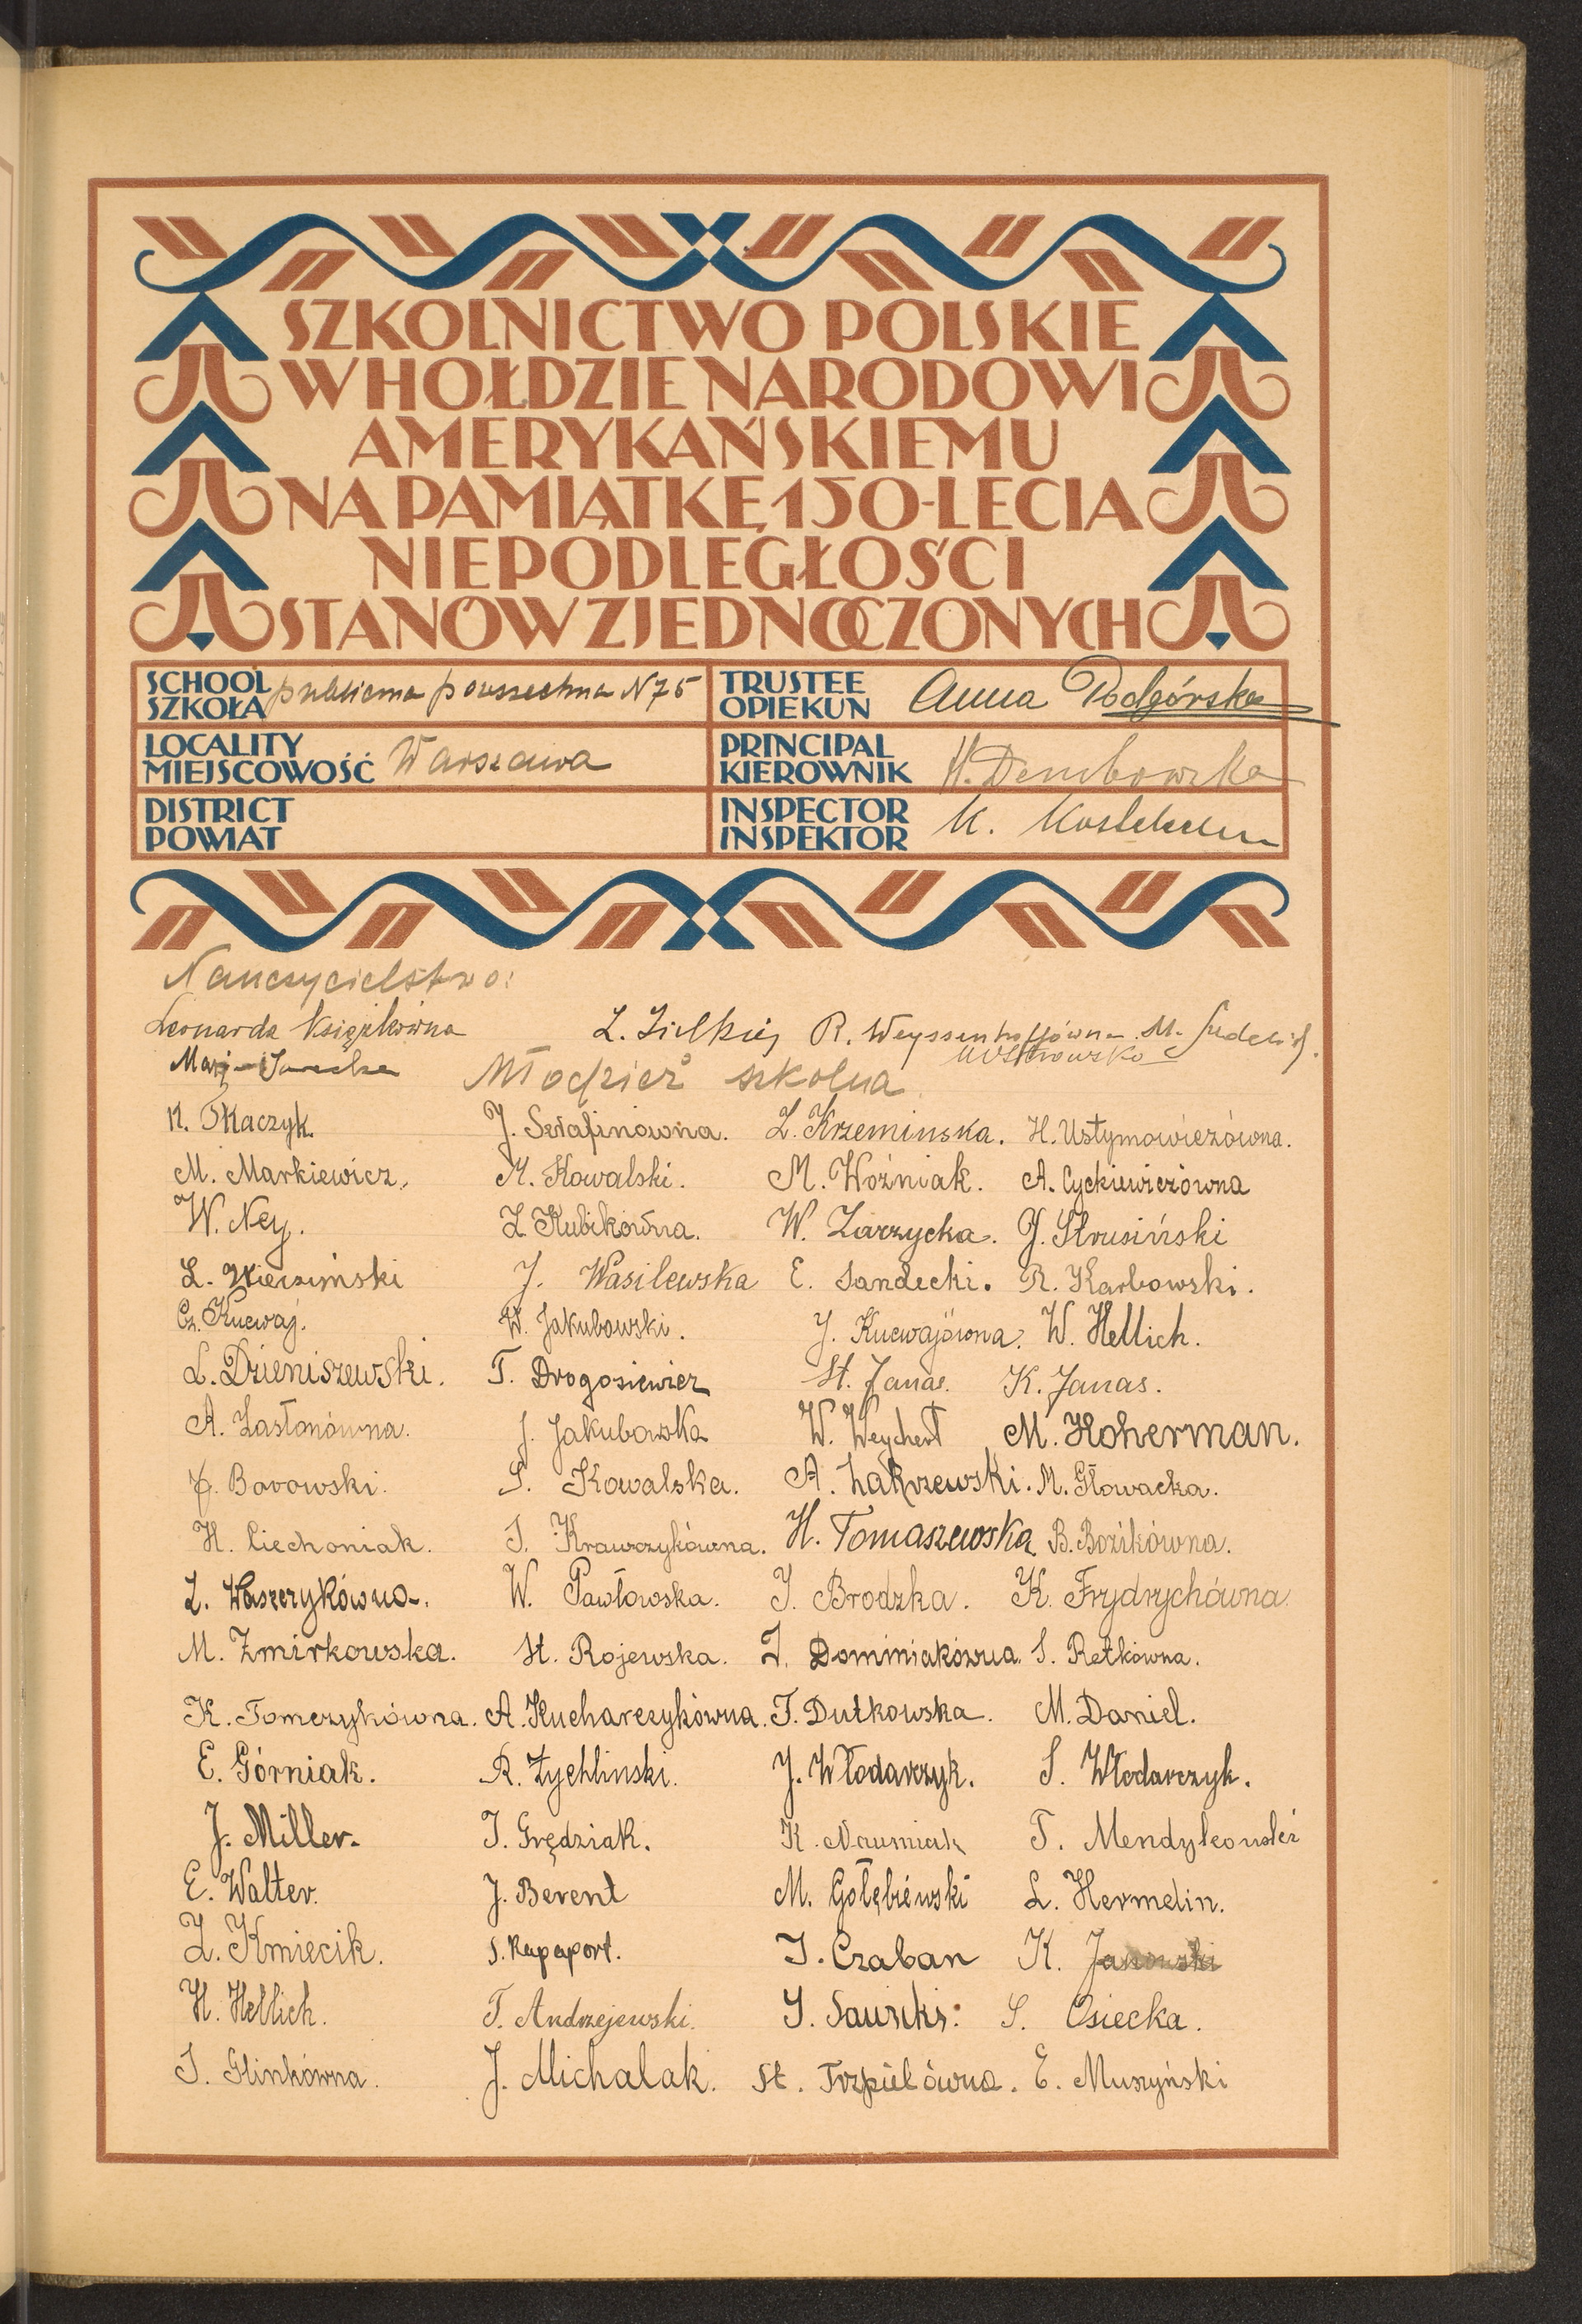 SZKOLNICTWO POLSKIE
W HOŁDZIE NARODOWI
AMERYKAŃSKIEMU
NA PAMIĄTKĘ 150-LECIA
NIEPODLEGŁOŚCI
STANÓW ZJEDNOCZONYCH
SCHOOL SZKOŁA publiczna powszechna N 75
TRUSTEE OPIEKUN Anna Podgórska
LOCALITY MIEJSCOWOŚĆ Warszawa
PRINCIPAL KIEROWNIK H. Dembowska
DISTRICT POWIAT
INSPECTOR INSPEKTOR K.
Nauczycielstwo:
Leonarda Książkówna L. R. Weyssenhoffówna M.
Młodzież szkolna
K. Tkaczyk. J. Serafinowna. L. Krzeminska. H. Ustymowiczówna.
M. Markiewicz, K. Kowalski. M. Woźniak. A. Cyckiewiczówna
W. Ney. Z Kubikówna. W. Zarzycka. J. Strusiński
L. J. Wasilewska E. Sandecki. R. Karbowski.
Cz. Kucwaj. W. Jakubowski. J. Kucwajówna. W. Hellich.
L. Dzieniszewski. T. Drogosiewicz St. Janas. K. Janas.
A. Zasłonówna. J. Jakubowska W. Weychert M. Hoherman.
J. Borowski. S. Kowalska. A. Zakrzewski. M. Głowacka.
H. Ciechoniak. J. Krawczykówna. H. Tomaszewska B. Bozikówna.
L. Waszczykówna. W. Pawłowska. J. Brodzka. K. Frydrychówna.
M. Żmirkowska. St. Rojewska. J. Dominiakówna. S. Retkówna.
K. Tomczykówna. A. Kucharczykówna. T. Dutkowska. M. Daniel.
E. Górniak. R. Żychlinski. J. Włodarczyk. S. Włodarczyk.
J. Miller. J. Grędziak. K. Naumiak T. Mendykowski
E. Walter. J. Berent M. Gołębiewski L. Hermelin.
Z. Kmiecik. S. Rapaport. J. Czaban K. Janowski
H. Hellich. T. Andrzejewski. J. S. Osiecka.
J. Glinkówna. J. Michalak. St. Trzpilówna. E. Muszyński